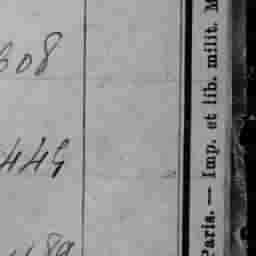 608
444
189
Paris. — Imp. et lib. milit. M